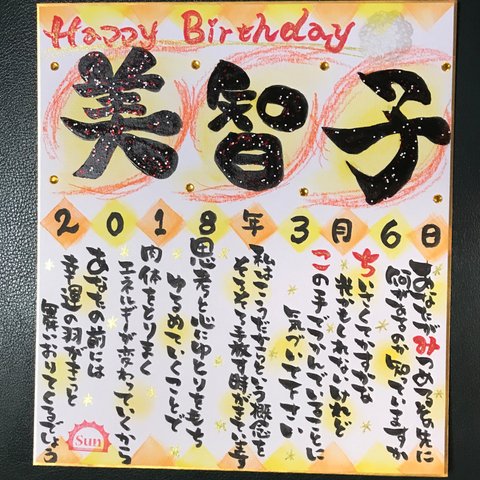 Happy Birthday
美智子
2018年3月6日
あなたがみつめるその先に
何があるのか知っていますか
ちいさくてかすかな
光かもしれないけれど
この手でつかんでいることに
気づいて下さい
私はこうだからという概念を
そろそろ手放す時がきています
思考と心にゆとりをもち
ゆるめていくことで
肉体をとりまく
エネルギーが変わっていくから
あなたの前には
幸運の羽がきっと
舞いおりてくるでしょう
Sun